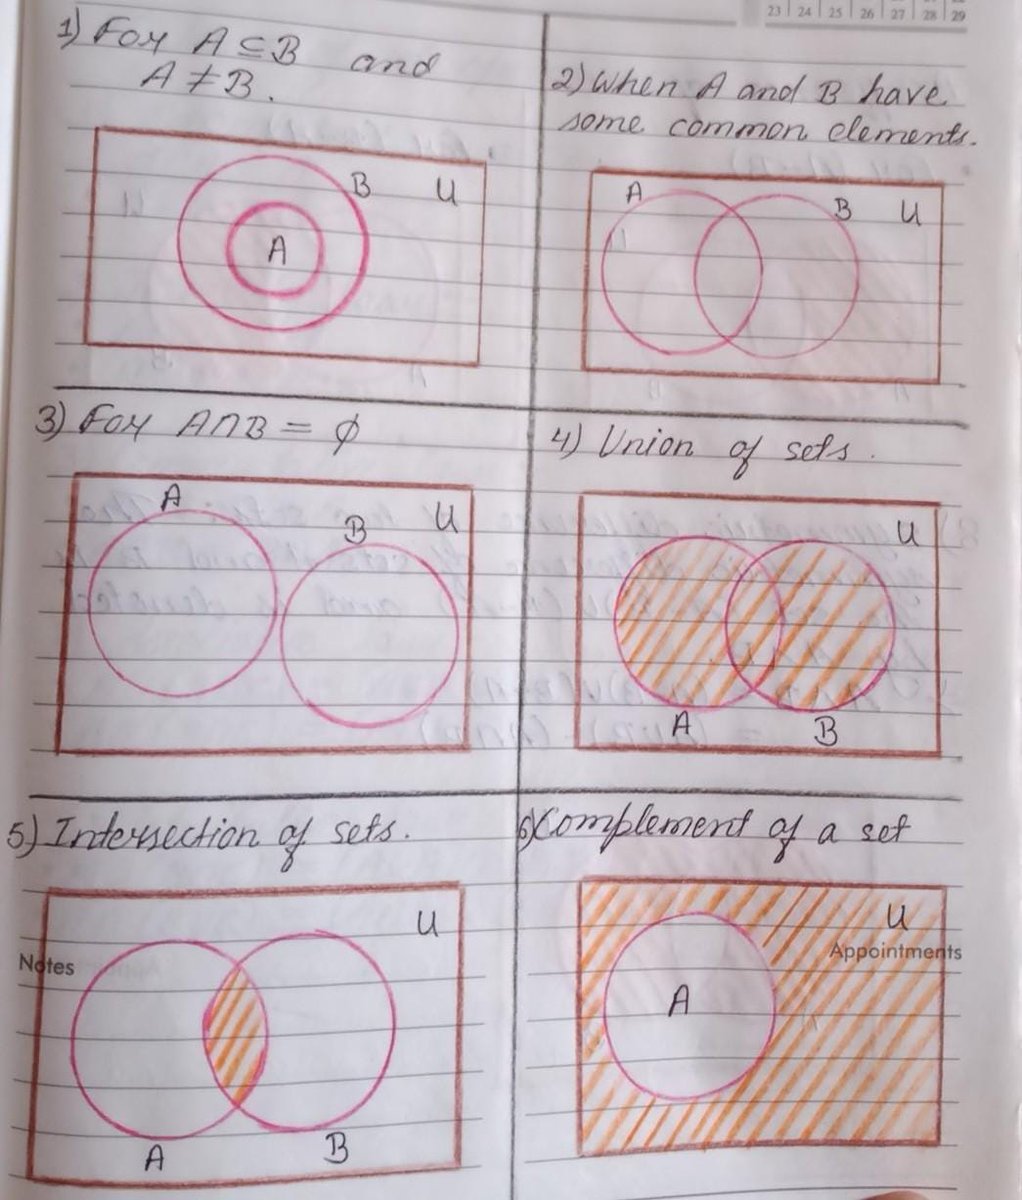 23 | 24 | 25 | 26 | 27 | 28 | 29
1) For A ⊆ B and
A ≠ B.
B U
A
2) When A and B have
some common elements.
A B U
3) For A∩B = ϕ
A B U
4) Union of sets.
U
A B
5) Intersection of sets.
U
Notes
A B
6) Complement of a set
U
Appointments
A